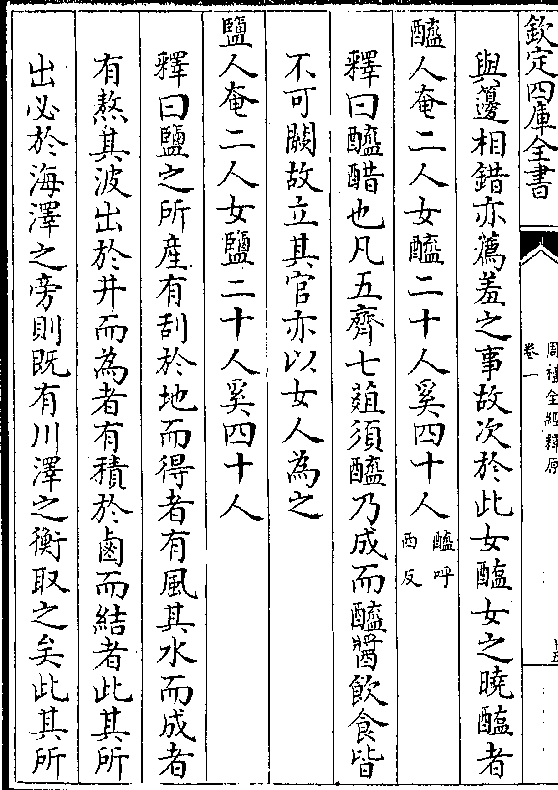 欽定四庫全書
周禮全經釋原
卷一
與籩相錯亦薦羞之事故次於此女醢女之曉醢者
醯人奄二人女醯二十人奚四十人醯呼
西反
釋曰醯醋也凡五齊七菹須醯乃成而醯醬飲食皆
不可闕故立其官亦以女人為之
鹽人奄二人女鹽二十人奚四十人
釋曰鹽之所産有刮於地而得者有風其水而成者
有熬其波出於井而為者有積於鹵而結者此其所
出必於海澤之旁則既有川澤之衡取之矣此其所